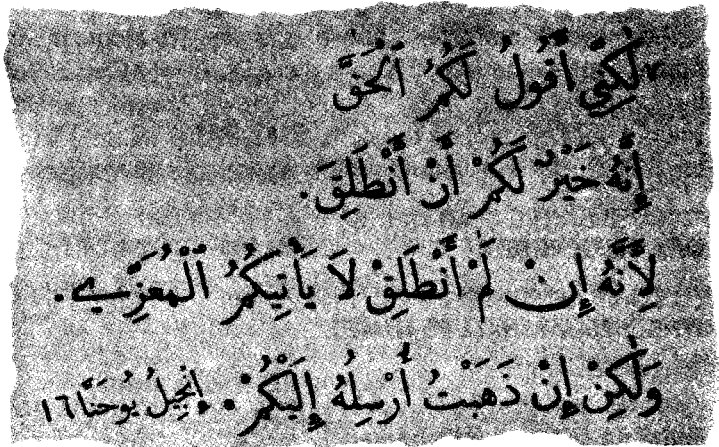 ٧ لَٰكِنِّي أَقُولُ لَكُمُ ٱلْحَقَّ
إِنَّهُ خَيْرٌ لَكُمْ أَنْ أَنْطَلِقَ.
لِأَنَّهُ إِنْ لَمْ أَنْطَلِقْ لَا يَأْتِيكُمُ ٱلْمُعَزِّي.
وَلَٰكِنْ إِنْ ذَهَبْتُ أُرْسِلُهُ إِلَيْكُمْ. إنجيل يوحنَّا ١٦